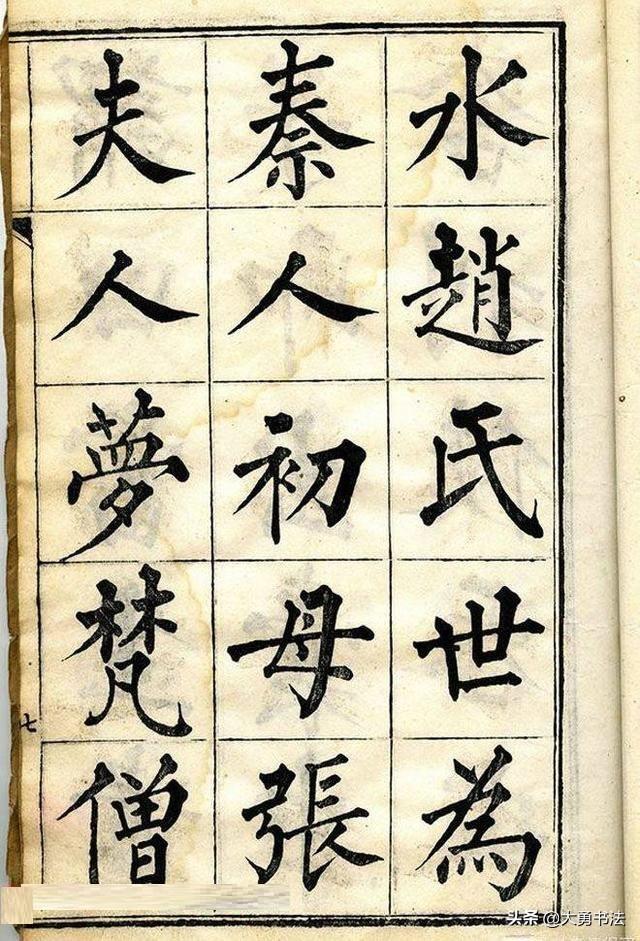 水趙氏世為
秦人初母張
夫人夢梵僧
七
头条 @大勇书法